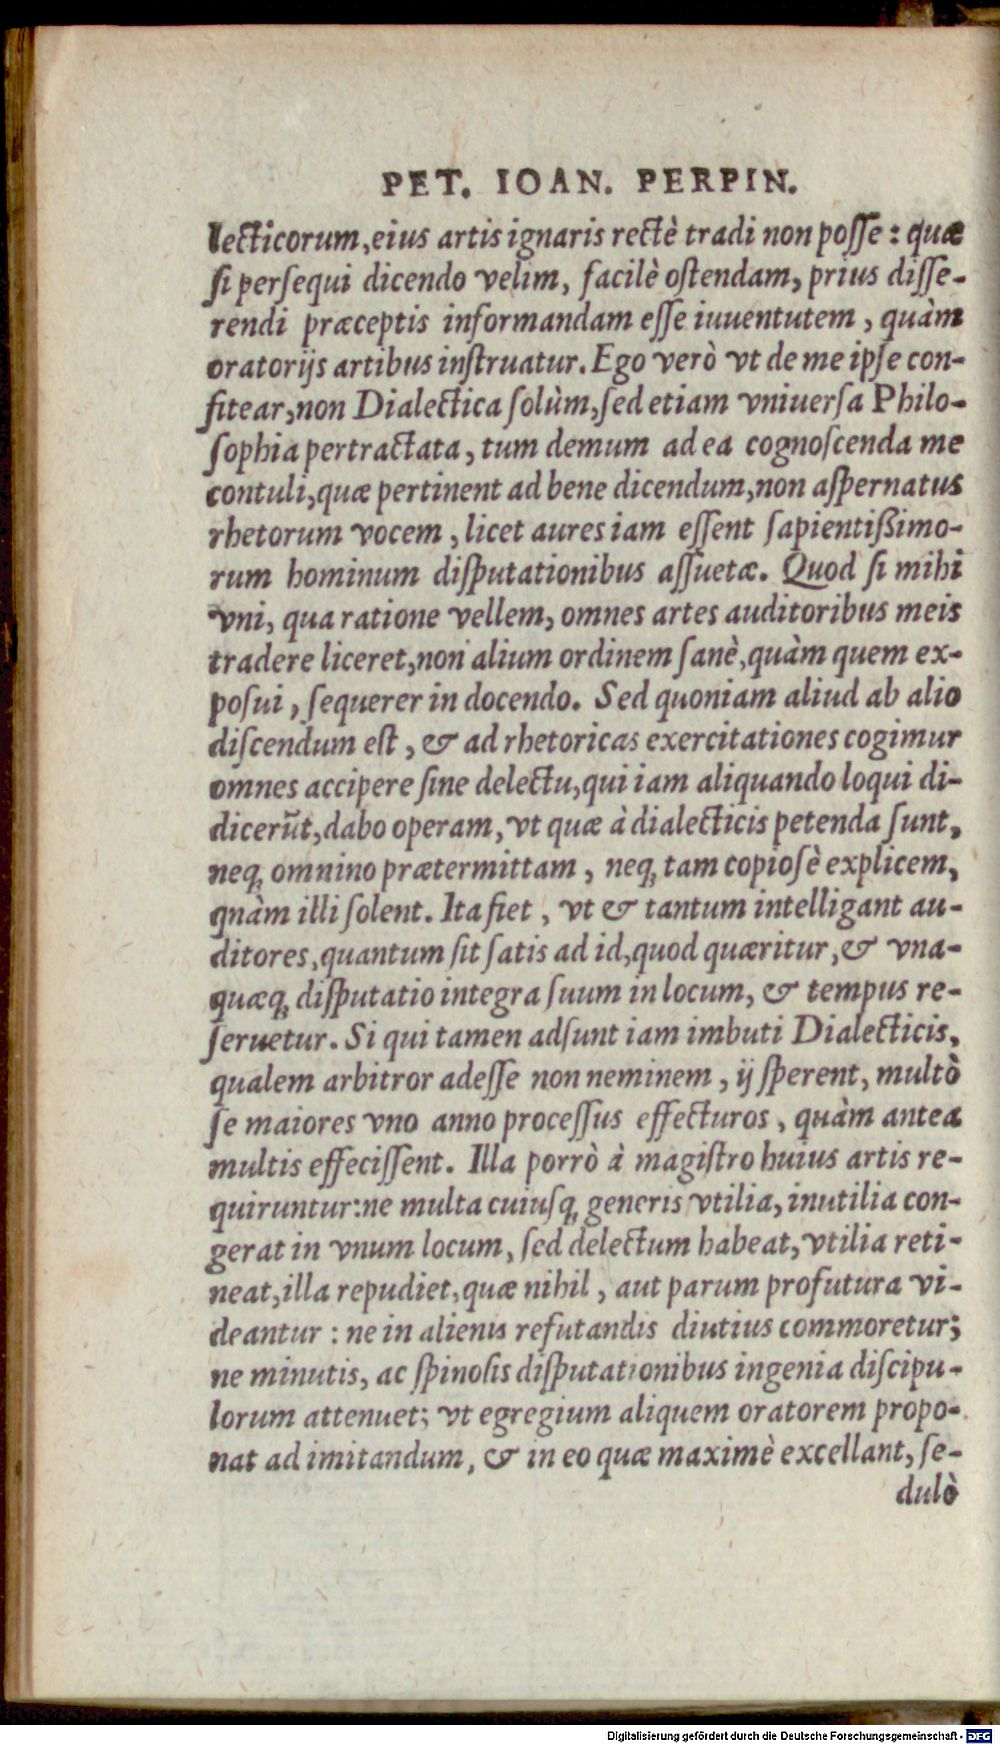 PET. IOAN. PERPIN.
lecticorum, eius artis ignaris rectè tradi non posse: quæ
si persequi dicendo velim, facilè ostendam, prius disse-
rendi præceptis informandam esse iuuentutem, quàm
oratorijs artibus instruatur. Ego verò vt de me ipse con-
fitear, non Dialectica solùm, sed etiam vniuersa Philo-
sophia pertractata, tum demum ad ea cognoscenda me
contuli, quæ pertinent ad bene dicendum, non aspernatus
rhetorum vocem, licet aures iam essent sapientißimo-
rum hominum disputationibus assuetæ. Quod si mihi
vni, qua ratione vellem, omnes artes auditoribus meis
tradere liceret, non alium ordinem sanè, quàm quem ex-
posui, sequerer in docendo. Sed quoniam aliud ab alio
discendum est, & ad rhetoricas exercitationes cogimur
omnes accipere sine delectu, qui iam aliquando loqui di-
dicerūt, dabo operam, vt quæ à dialecticis petenda sunt,
neq, omnino prætermittam, neq, tam copiosè explicem,
qnàm illi solent. Ita fiet, vt & tantum intelligant au-
ditores, quantum sit satis ad id, quod quæritur, & vna-
quæq, disputatio integra suum in locum, & tempus re-
seruetur. Si qui tamen adsunt iam imbuti Dialecticis,
qualem arbitror adesse non neminem, ij sperent, multò
se maiores vno anno processus effecturos, quàm antea
multis effecissent. Illa porrò à magistro huius artis re-
quiruntur: ne multa cuiusq, generis vtilia, inutilia con-
gerat in vnum locum, sed delectum habeat, vtilia reti-
neat, illa repudiet, quæ nihil, aut parum profutura vi-
deantur: ne in alienis refutandis diutius commoretur;
ne minutis, ac spinosis disputationibus ingenia discipu-
lorum attenuet; vt egregium aliquem oratorem propo-
nat ad imitandum, & in eo quæ maximè excellant, se-
dulò
Digitalisierung gefördert durch die Deutsche Forschungsgemeinschaft - DFG